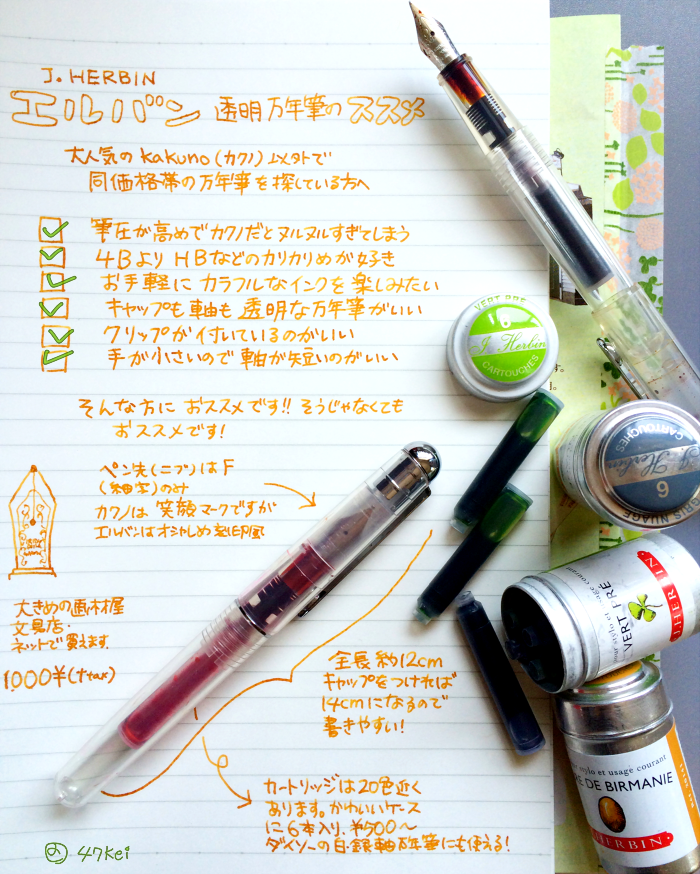 J. HERBIN
エルバン 透明万年筆のススメ
大人気のkakuno(カクノ)以外で
同価格帯の万年筆を探している方へ
筆圧が高めでカクノだとヌルヌルすぎてしまう
4BよりHBなどのカリカリめが好き
お手軽にカラフルなインクを楽しみたい
キャップも軸も透明な万年筆がいい
クリップが付いているのがいい
手が小さいので軸が短いのがいい
そんな方におススメです!! そうじゃなくても
おススメです!
ペン先(ニブ)はF
(細字)のみ
カクノは笑顔マークですが
エルバンはオシャレめな刻印風
大きめの画材屋
文具店・
ネットで買えます
1.000¥(+tax)
全長約12cm
キャップをつければ
14cmになるので
書きやすい!
カートリッジは20色近く
あります。かわいいケース
に6本入り、¥500〜
ダイソーの白・銀軸万年筆にも使える!
め 47kei
VERT PRE
J. Herbin
CARTOUCHES
CARTOUCHES
J. Herbin
6
PARIS NUAGE
pour stylo et usage courant
VERT PRÉ
HERBIN
stylo et usage courant
DE BIRMANIE
HERBIN